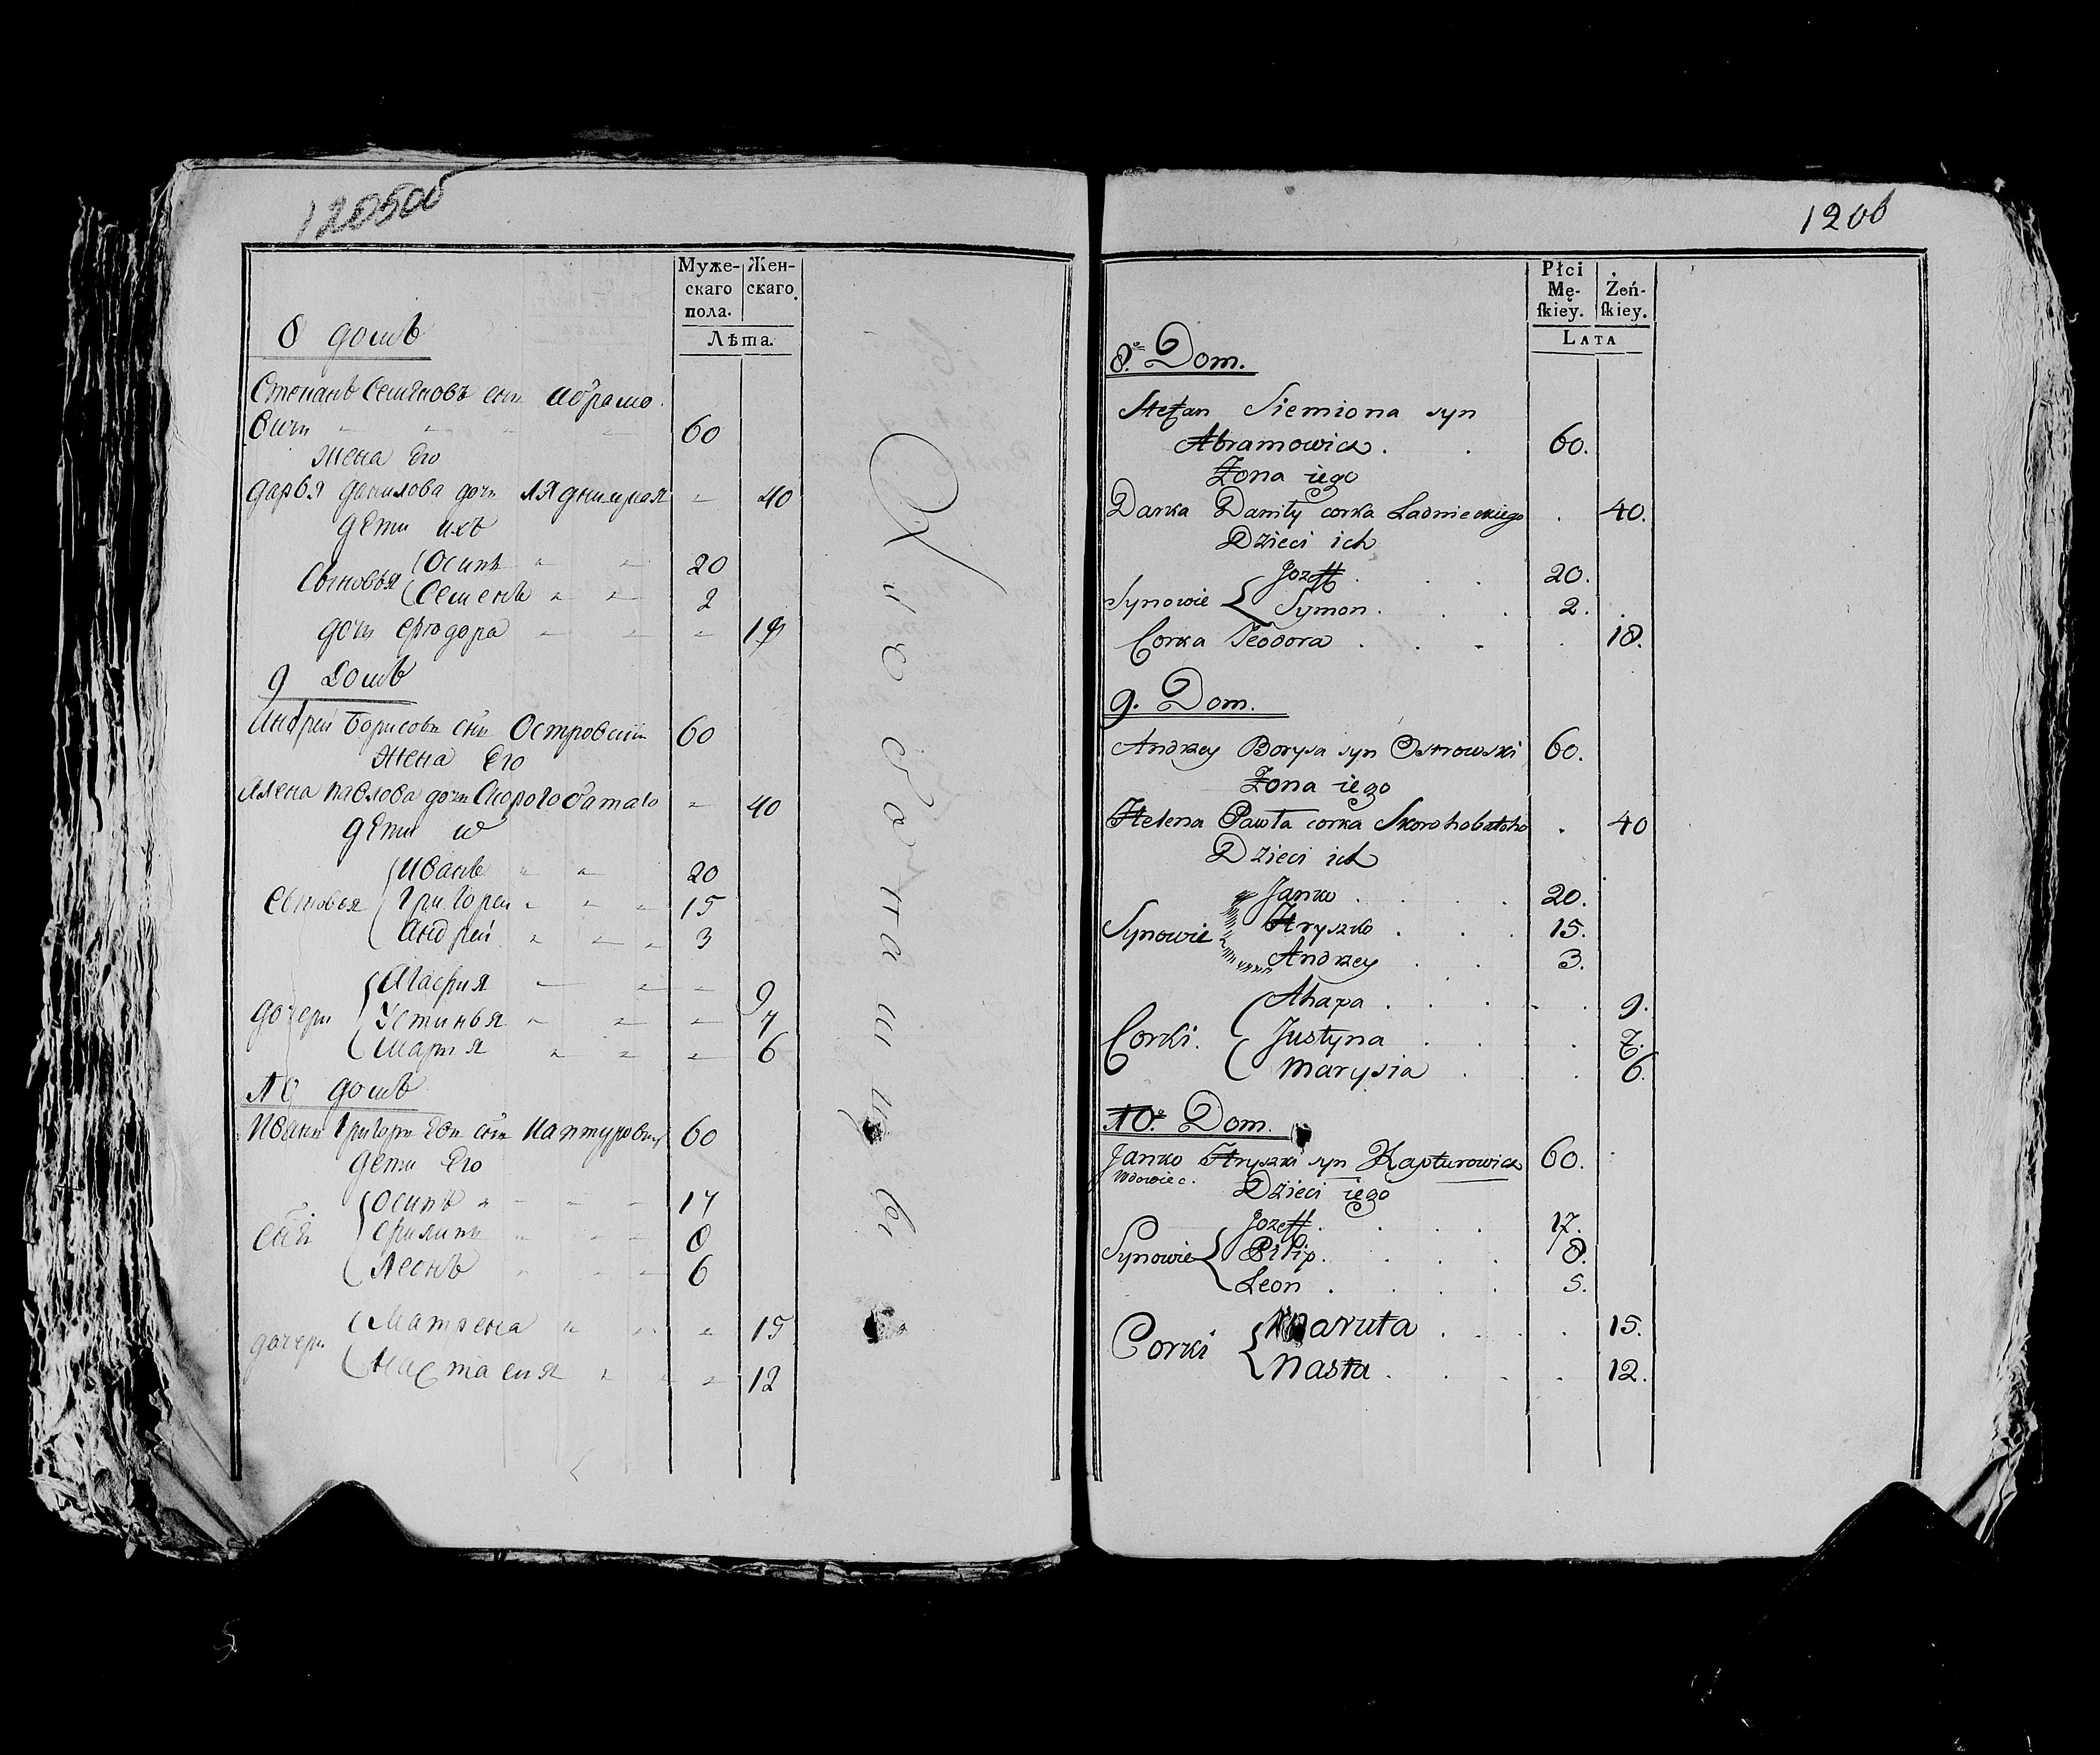 1206
Муже-
скаго
пола.
Жен-
скаго.
Лѣта.
8 домъ
Степанъ Семяновъ сын Абрамо-
вичь 60
жена Его
дарья данилова дочь 40
дети ихъ
Сыновья Осипъ 20
Семенъ 2
дочь Фиодора
9 домъ
Андрей Борисовъ сын Островский 60
жена Его
Алена павлова дочь Скорогобатаго 40
дети
Сыновья Иванъ 20
Григорей 15
Андрей 3
дочери Агафия 9
Устинья 7
Мария 6
10 домъ
Иванъ Григорьевъ сын Каптурович 60
дети Его
Осипъ 17
Филипъ 8
Леонъ 6
дочери Матрена 15
Настасия 12
Płci
Mę-
ſkiey.
Żeń-
ſkiey.
LATA
8. Dom.
Stefan Siemiona syn
Abramowicz. 60.
Żona iego
Darka Daniły corka Ladnieckiego 40.
Dzieci ich
Jozeff 20.
Synowie Symon. 2.
Corka Teodora 18.
9. Dom.
Andrzey Borysa syn Ostrowski 60.
Żona iego
Helena Pawła corka Skorohobatoho 40
Dzieci ich
Janko 20.
Synowie Hryszko 15.
Andrzey 3.
Ahapa 9.
Corki. Justyna 7.
Marysia 6.
10. Dom.
Janko Hryszki syn Kapturowicz 60.
Wdowiec. Dzieci iego
Jozeff. 17.
Synowie Pilip. 8.
Leon 5.
Corki Maruta 15.
Nasta 12.